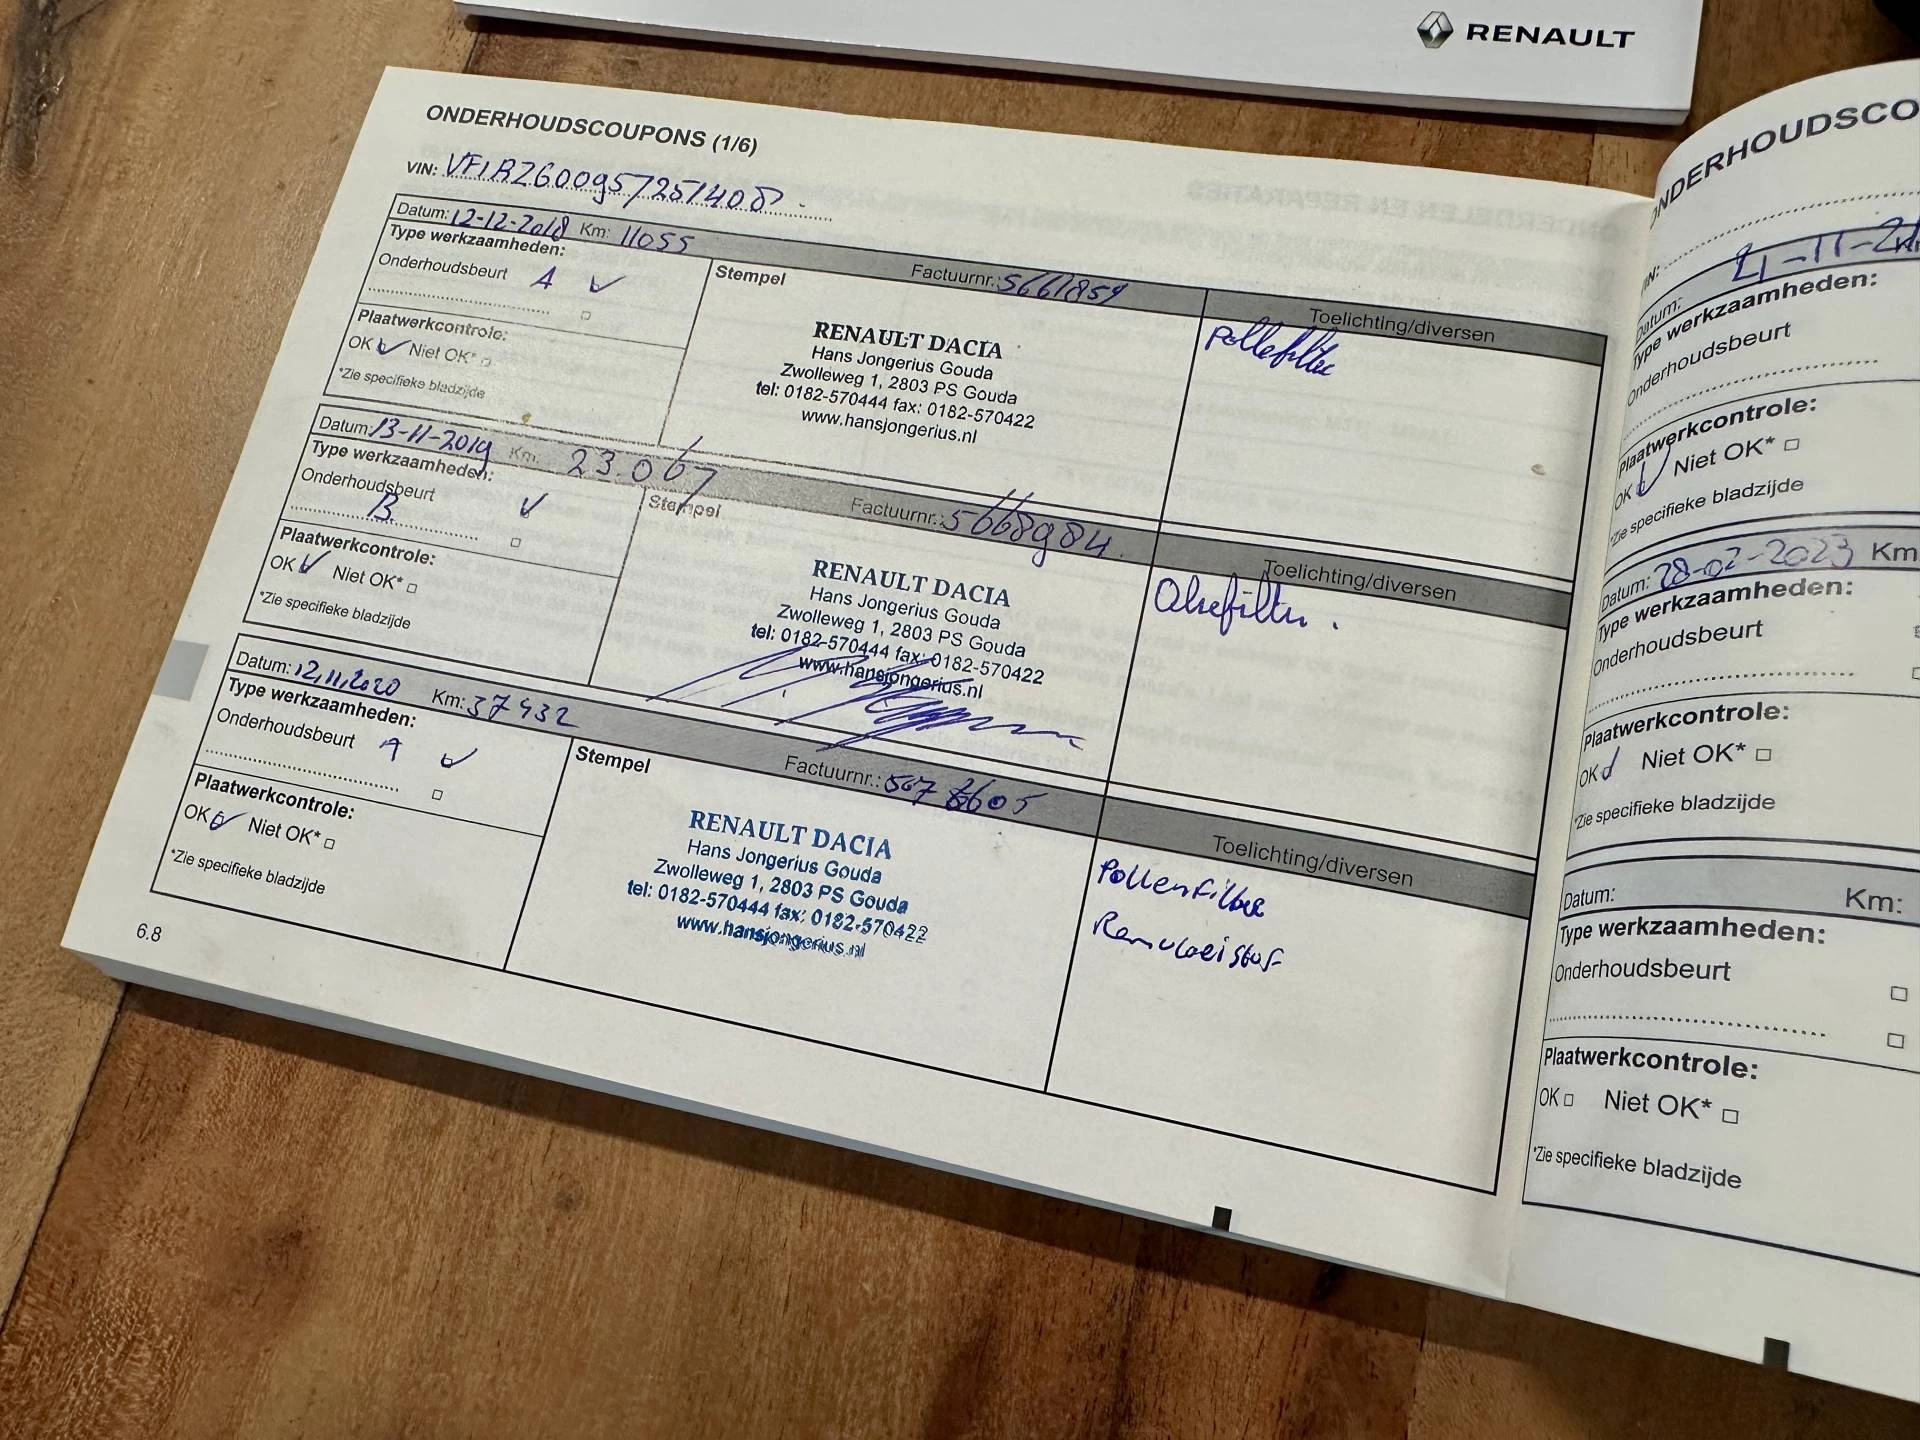 RENAULT
ONDERHOUDSCOUPONS (1/6)
VIN: VF1RZ600957251408.
Datum: 12-12-2018 Km: 11055
Type werkzaamheden:
Onderhoudsbeurt A
Plaatwerkcontrole:
OK Niet OK*
*Zie specifieke bladzijde
Stempel
Factuurnr.: 5661859
RENAULT DACIA
Hans Jongerius Gouda
Zwolleweg 1, 2803 PS Gouda
tel: 0182-570444 fax: 0182-570422
www.hansjongerius.nl
Toelichting/diversen
Pollefilter
Datum: 13-11-2019 Km: 23.067
Type werkzaamheden:
Onderhoudsbeurt
B
Plaatwerkcontrole:
OK Niet OK*
*Zie specifieke bladzijde
Stempel
Factuurnr.: 5668984.
RENAULT DACIA
Hans Jongerius Gouda
Zwolleweg 1, 2803 PS Gouda
tel: 0182-570444 fax: 0182-570422
www.hansjongerius.nl
Toelichting/diversen
Datum: 12.11.2020 Km: 37432
Type werkzaamheden:
Onderhoudsbeurt A
Plaatwerkcontrole:
OK Niet OK*
*Zie specifieke bladzijde
Stempel
Factuurnr.: 5678605
RENAULT DACIA
Hans Jongerius Gouda
Zwolleweg 1, 2803 PS Gouda
tel: 0182-570444 fax: 0182-570422
www.hansjongerius.nl
Toelichting/diversen
Pollenfilter
Remvloeistof
6.8
ONDERHOUDSCO
VIN:
Datum:
Type werkzaamheden:
Onderhoudsbeurt
Plaatwerkcontrole:
OK Niet OK*
*Zie specifieke bladzijde
Datum: 28-02-2023 Km
Type werkzaamheden:
Onderhoudsbeurt
Plaatwerkcontrole:
OK Niet OK*
*Zie specifieke bladzijde
Datum: Km:
Type werkzaamheden:
Onderhoudsbeurt
Plaatwerkcontrole:
OK Niet OK*
*Zie specifieke bladzijde